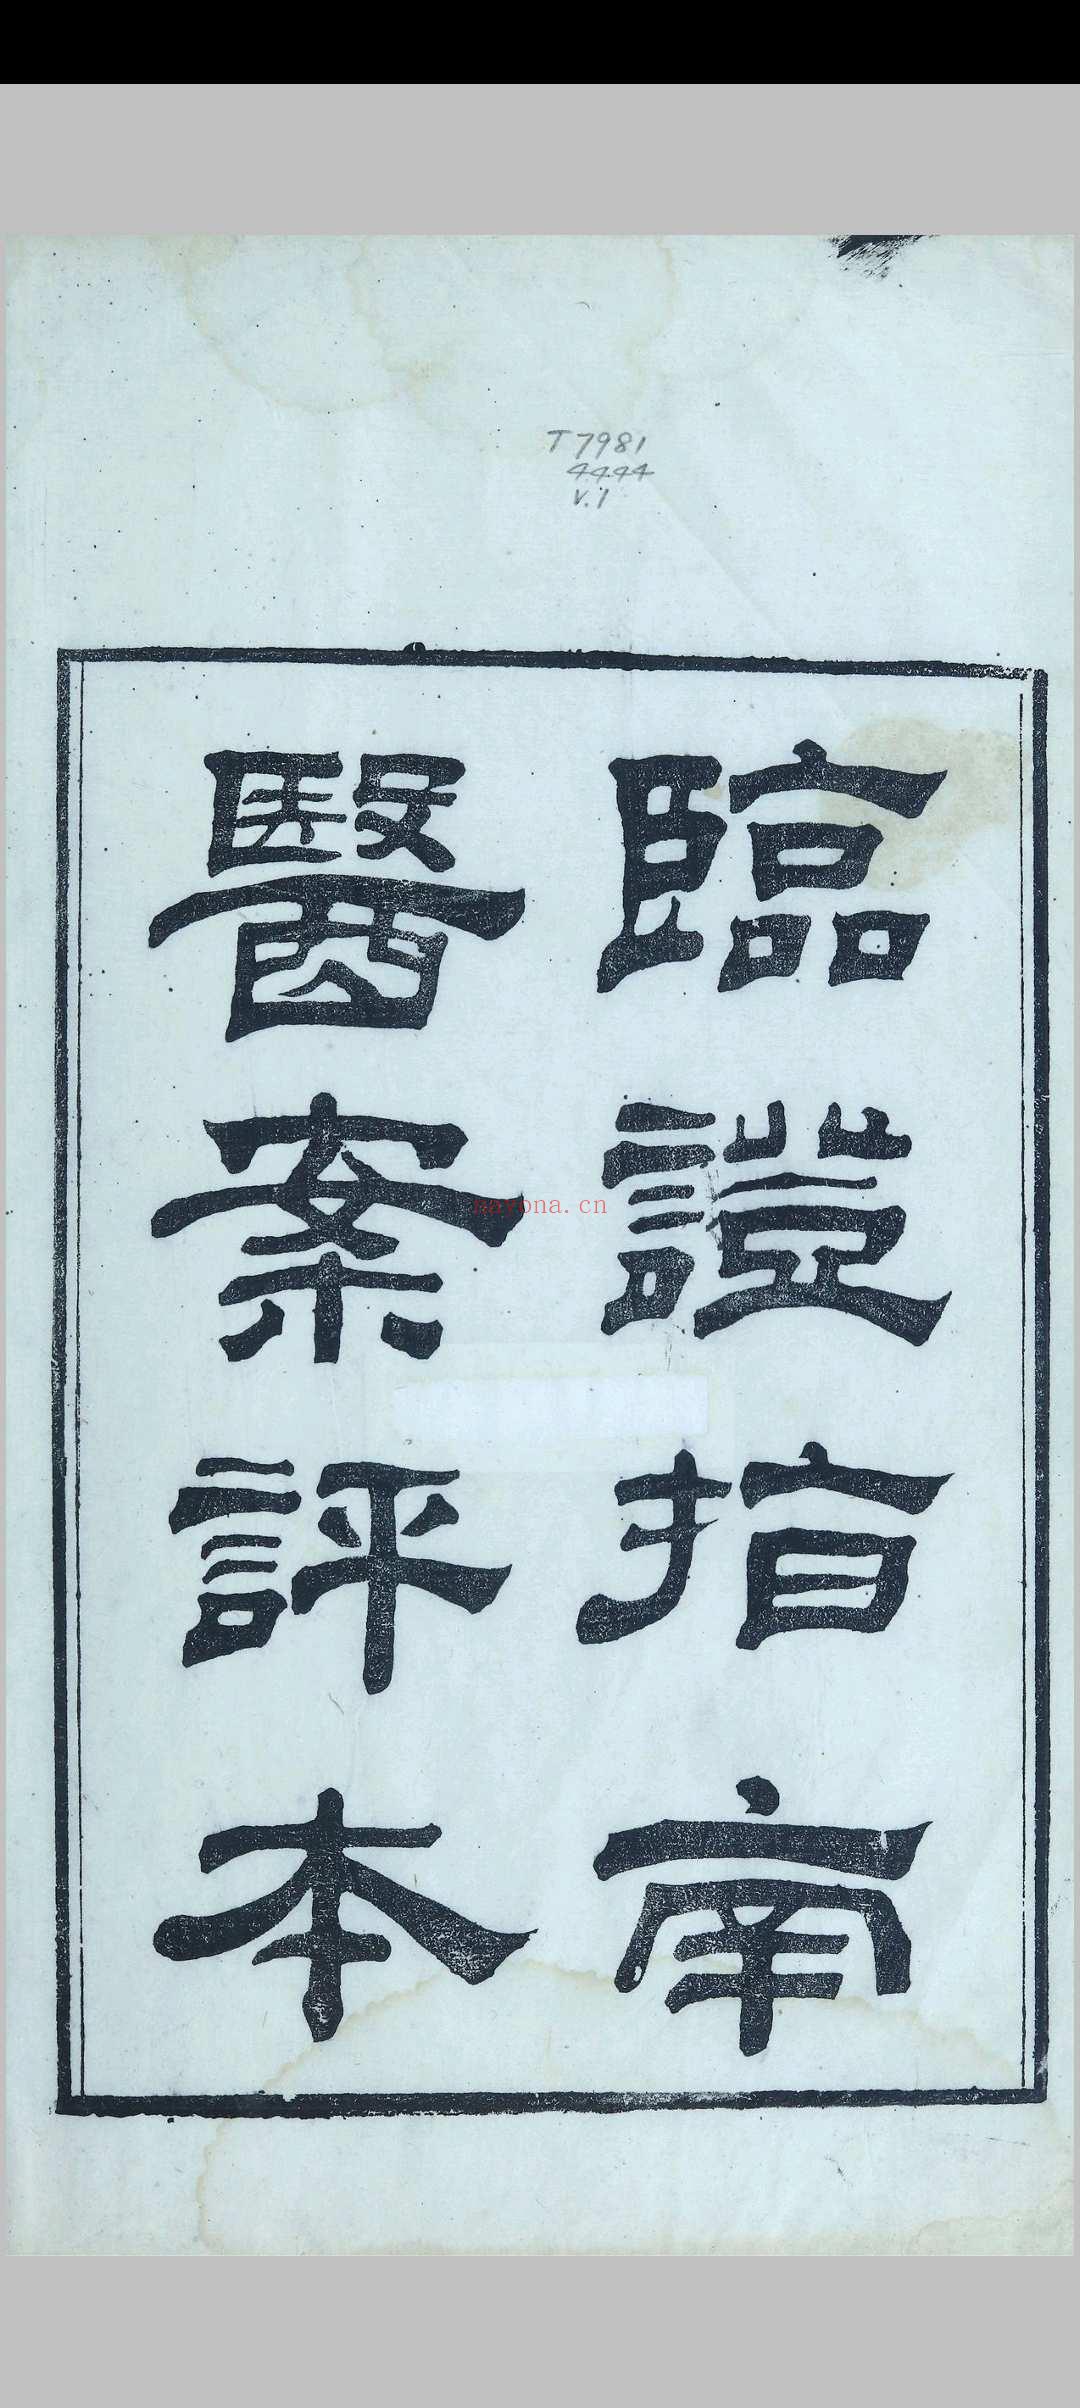 T7981
4444
V.1
臨證指南
醫案評本
nayona.cn